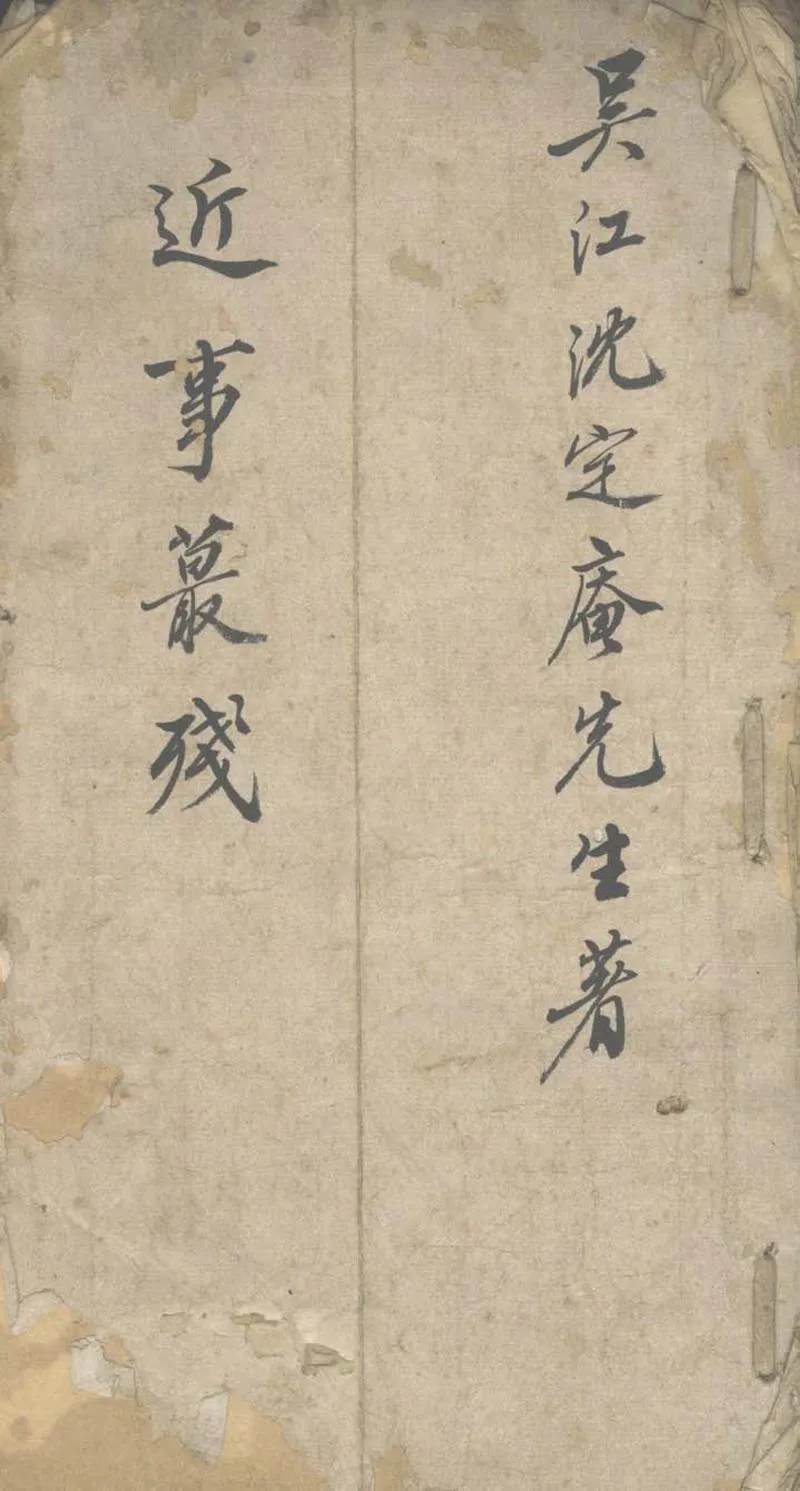 吳江沈定庵先生著
近事蕞殘